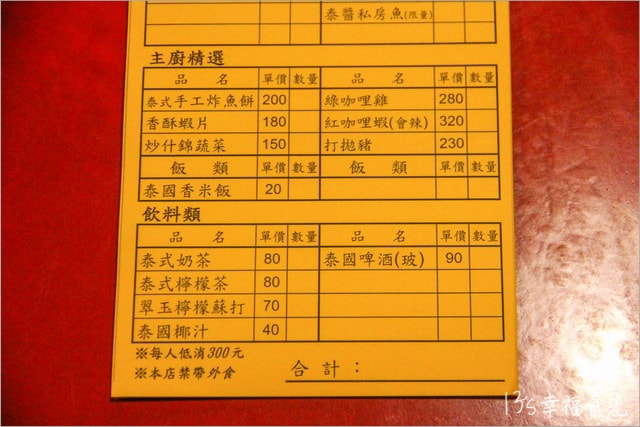 泰醬私房魚(限量)
主廚精選
品 名 單價 數量 品 名 單價 數量
泰式手工炸魚餅 200 綠咖哩雞 280
香酥蝦片 180 紅咖哩蝦(會辣) 320
炒什錦蔬菜 150 打拋豬 230
飯 類 單價 數量 飯 類 單價 數量
泰國香米飯 20
飲料類
品 名 單價 數量 品 名 單價 數量
泰式奶茶 80 泰國啤酒(玻) 90
泰式檸檬茶 80
翠玉檸檬蘇打 70
泰國椰汁 40
※每人低消300元
※本店禁帶外食
合 計：
13's幸福食光